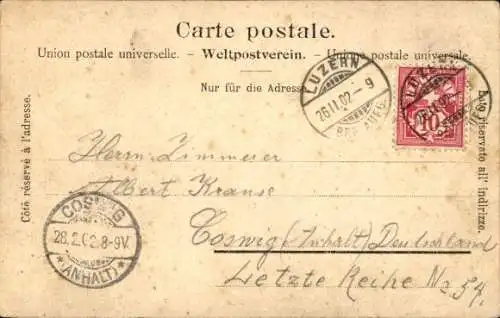 Carte postale.
Union postale universelle. - Weltpostverein. - Unione postale universale.
Nur für die Adresse.
Côté réservé à l'adresse.
Lato riservato all' indirizzo.
LUZERN
26.II.02-9
BRF. AUFG.
LUZERN
10
Herrn Zimmerer
Albert Krause
Coswig (Anhalt) Deutschland
Letzte Reihe No 54.
COSWIG
28.2.02.8-9V.
*(ANHALT)*